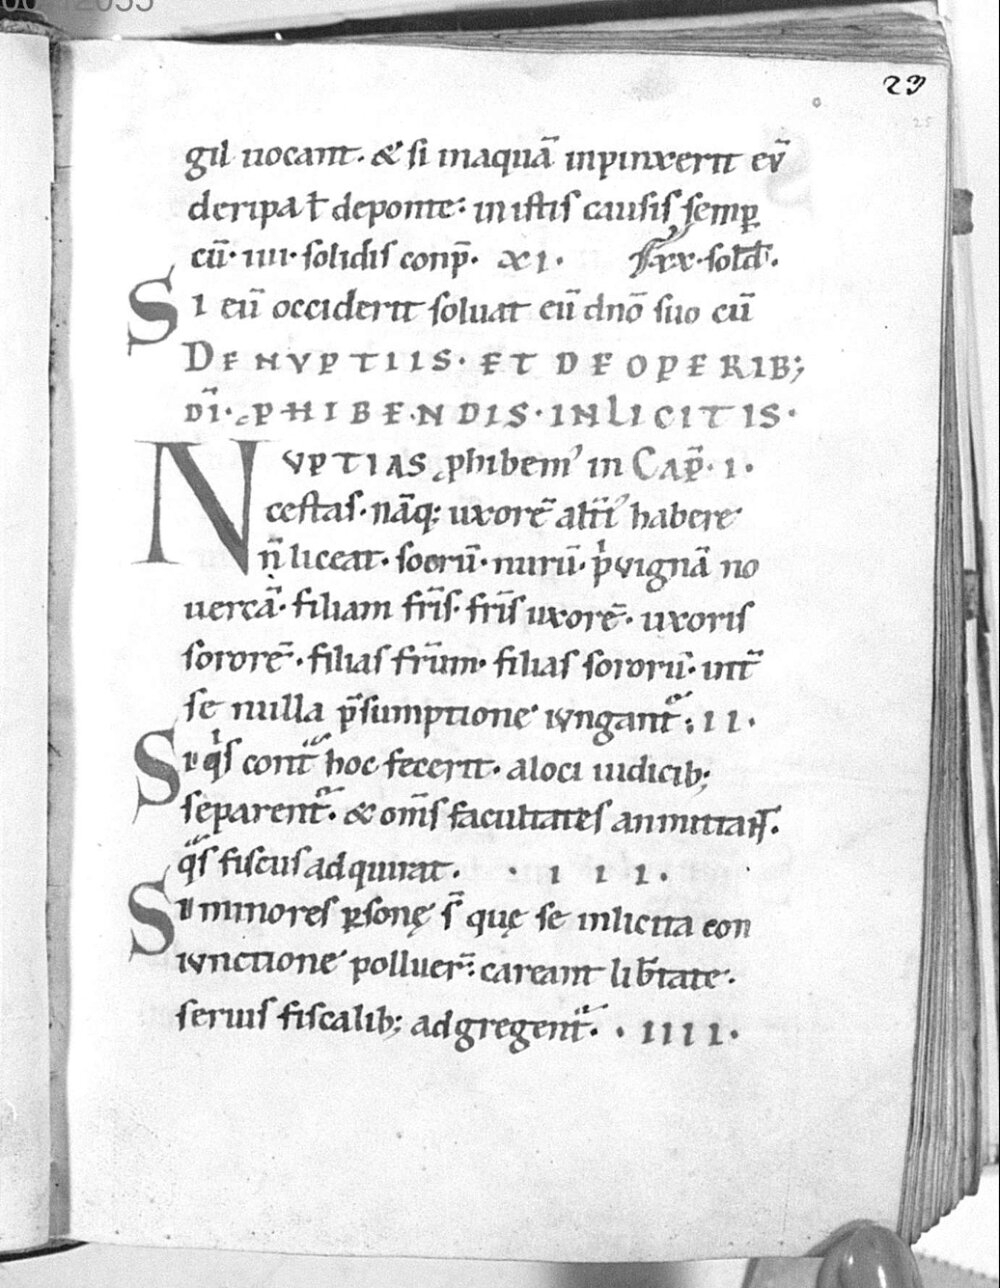 23
gil uocant. & si inaquā inpinxerit eū
deripa ł deponit: in istis causis semp̱
cū· iiii· solidis conp̄. xi. xx·sold̄.
Si eū occiderit soluat eū dn̄o suo cū
DE NVPTIIS· ET DE OPERIB;
DĪ·PHIBENDIS·INLICITIS·
NVPTIAS ꝓhibem' in CAP̄· i·
cestas·nāq; uxorē altī habere
n̄ liceat· socrū· nurū· pͥuignā no
uercā· filiam fr̄is· fr̄is uxorē· uxoris
sororē·filias fr̄um· filias sororū· int̄
se nulla p̄sumptione iungant̄: ii·
Si qͥs cont̄ hoc fecerit· aloci iudicib;
separent̄· & om̄s facultates
q̄s fiscus adquirat· · iii·
Si minores p̱sonę s̄ quę se inlicita con
iunctione polluer̄: careant lib̄tate·
seruis fiscalib; adgregent̄· · iiii·